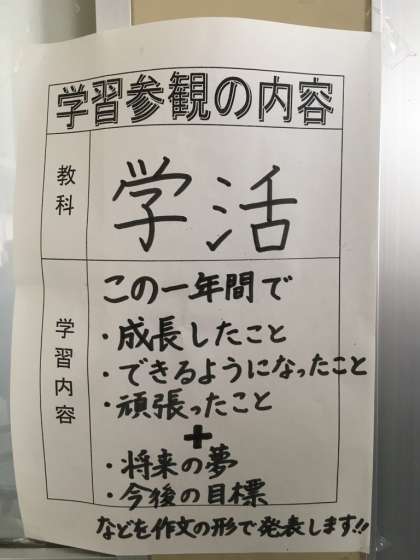 学習参観の内容
教科
学活
学習内容
この一年間で
・成長したこと
・できるようになったこと
・頑張ったこと
+
・将来の夢
・今後の目標
などを作文の形で発表します!!